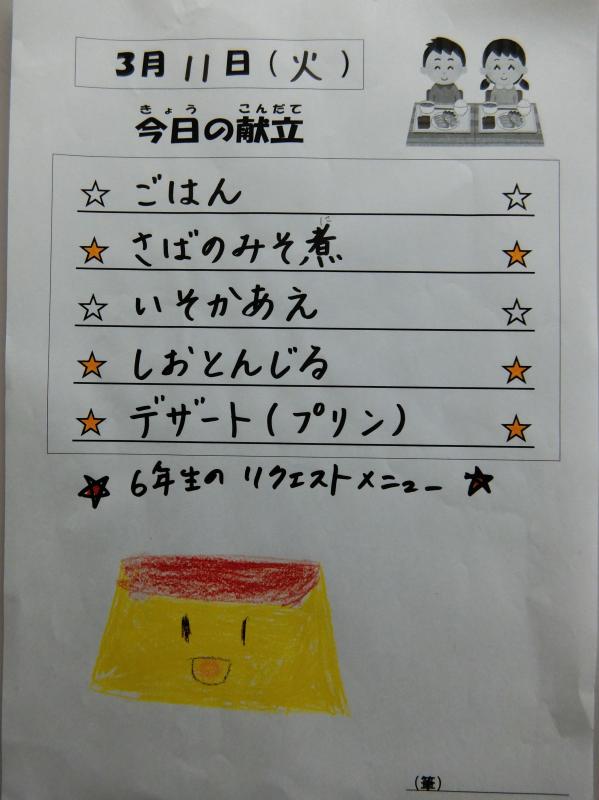 3月11日(火)
きょう こんだて
今日の献立
☆ ごはん ☆
★ さばのみそ煮 ★
に
☆ いそかあえ ☆
★ しおとんじる ★
★ デザート(プリン) ★
★ 6年生のリクエストメニュー ★
(筆)